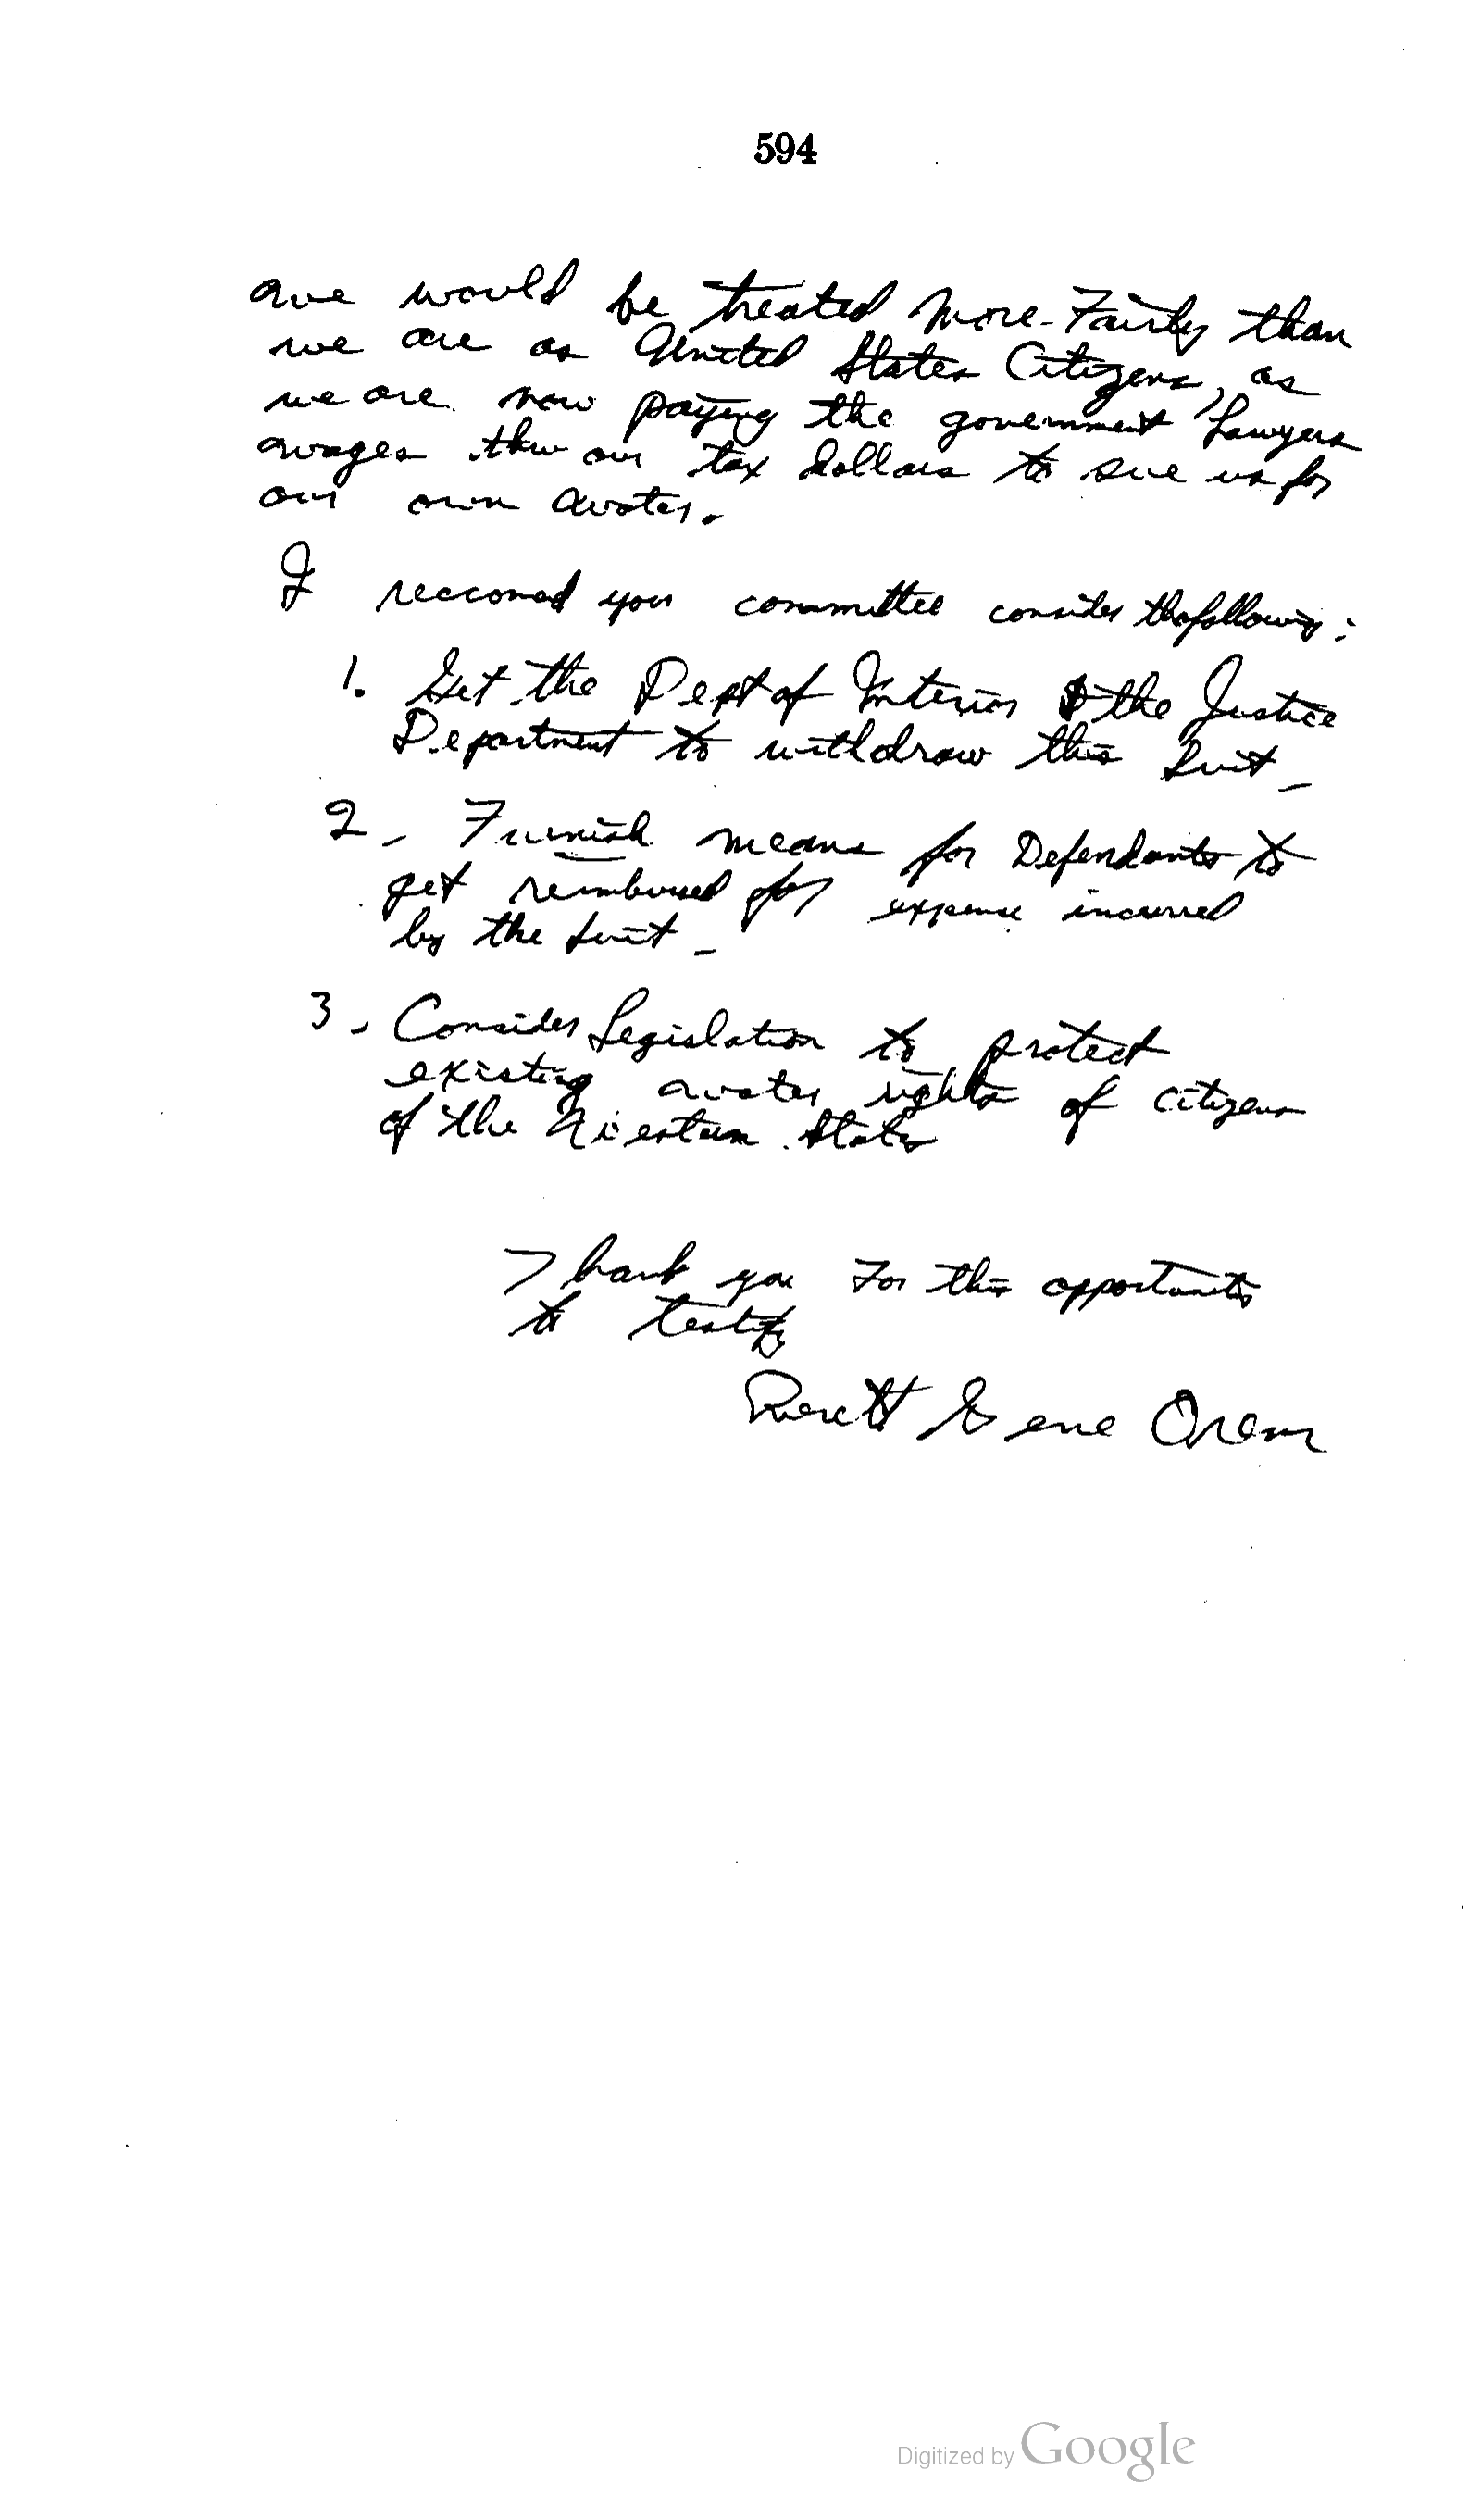 594
we would be treated more Fairly than
we are as United States Citizens, as
we are now paying the government Lawyers
wages thru our tax dollars to sue us for
our own water.
I reccomed your committee consider the following:
1. Get the Dept of Interior & the Justice
Department to withdraw this Suit -
2 - Furnish means for Defendants to
get reimbursed for expense incurred
by the suit -
3 - Consider Legislation to protect
existing water rights of citizens
of the Western States
Thank you For this opportunity
to testify
Gene Orem
Digitized by Google